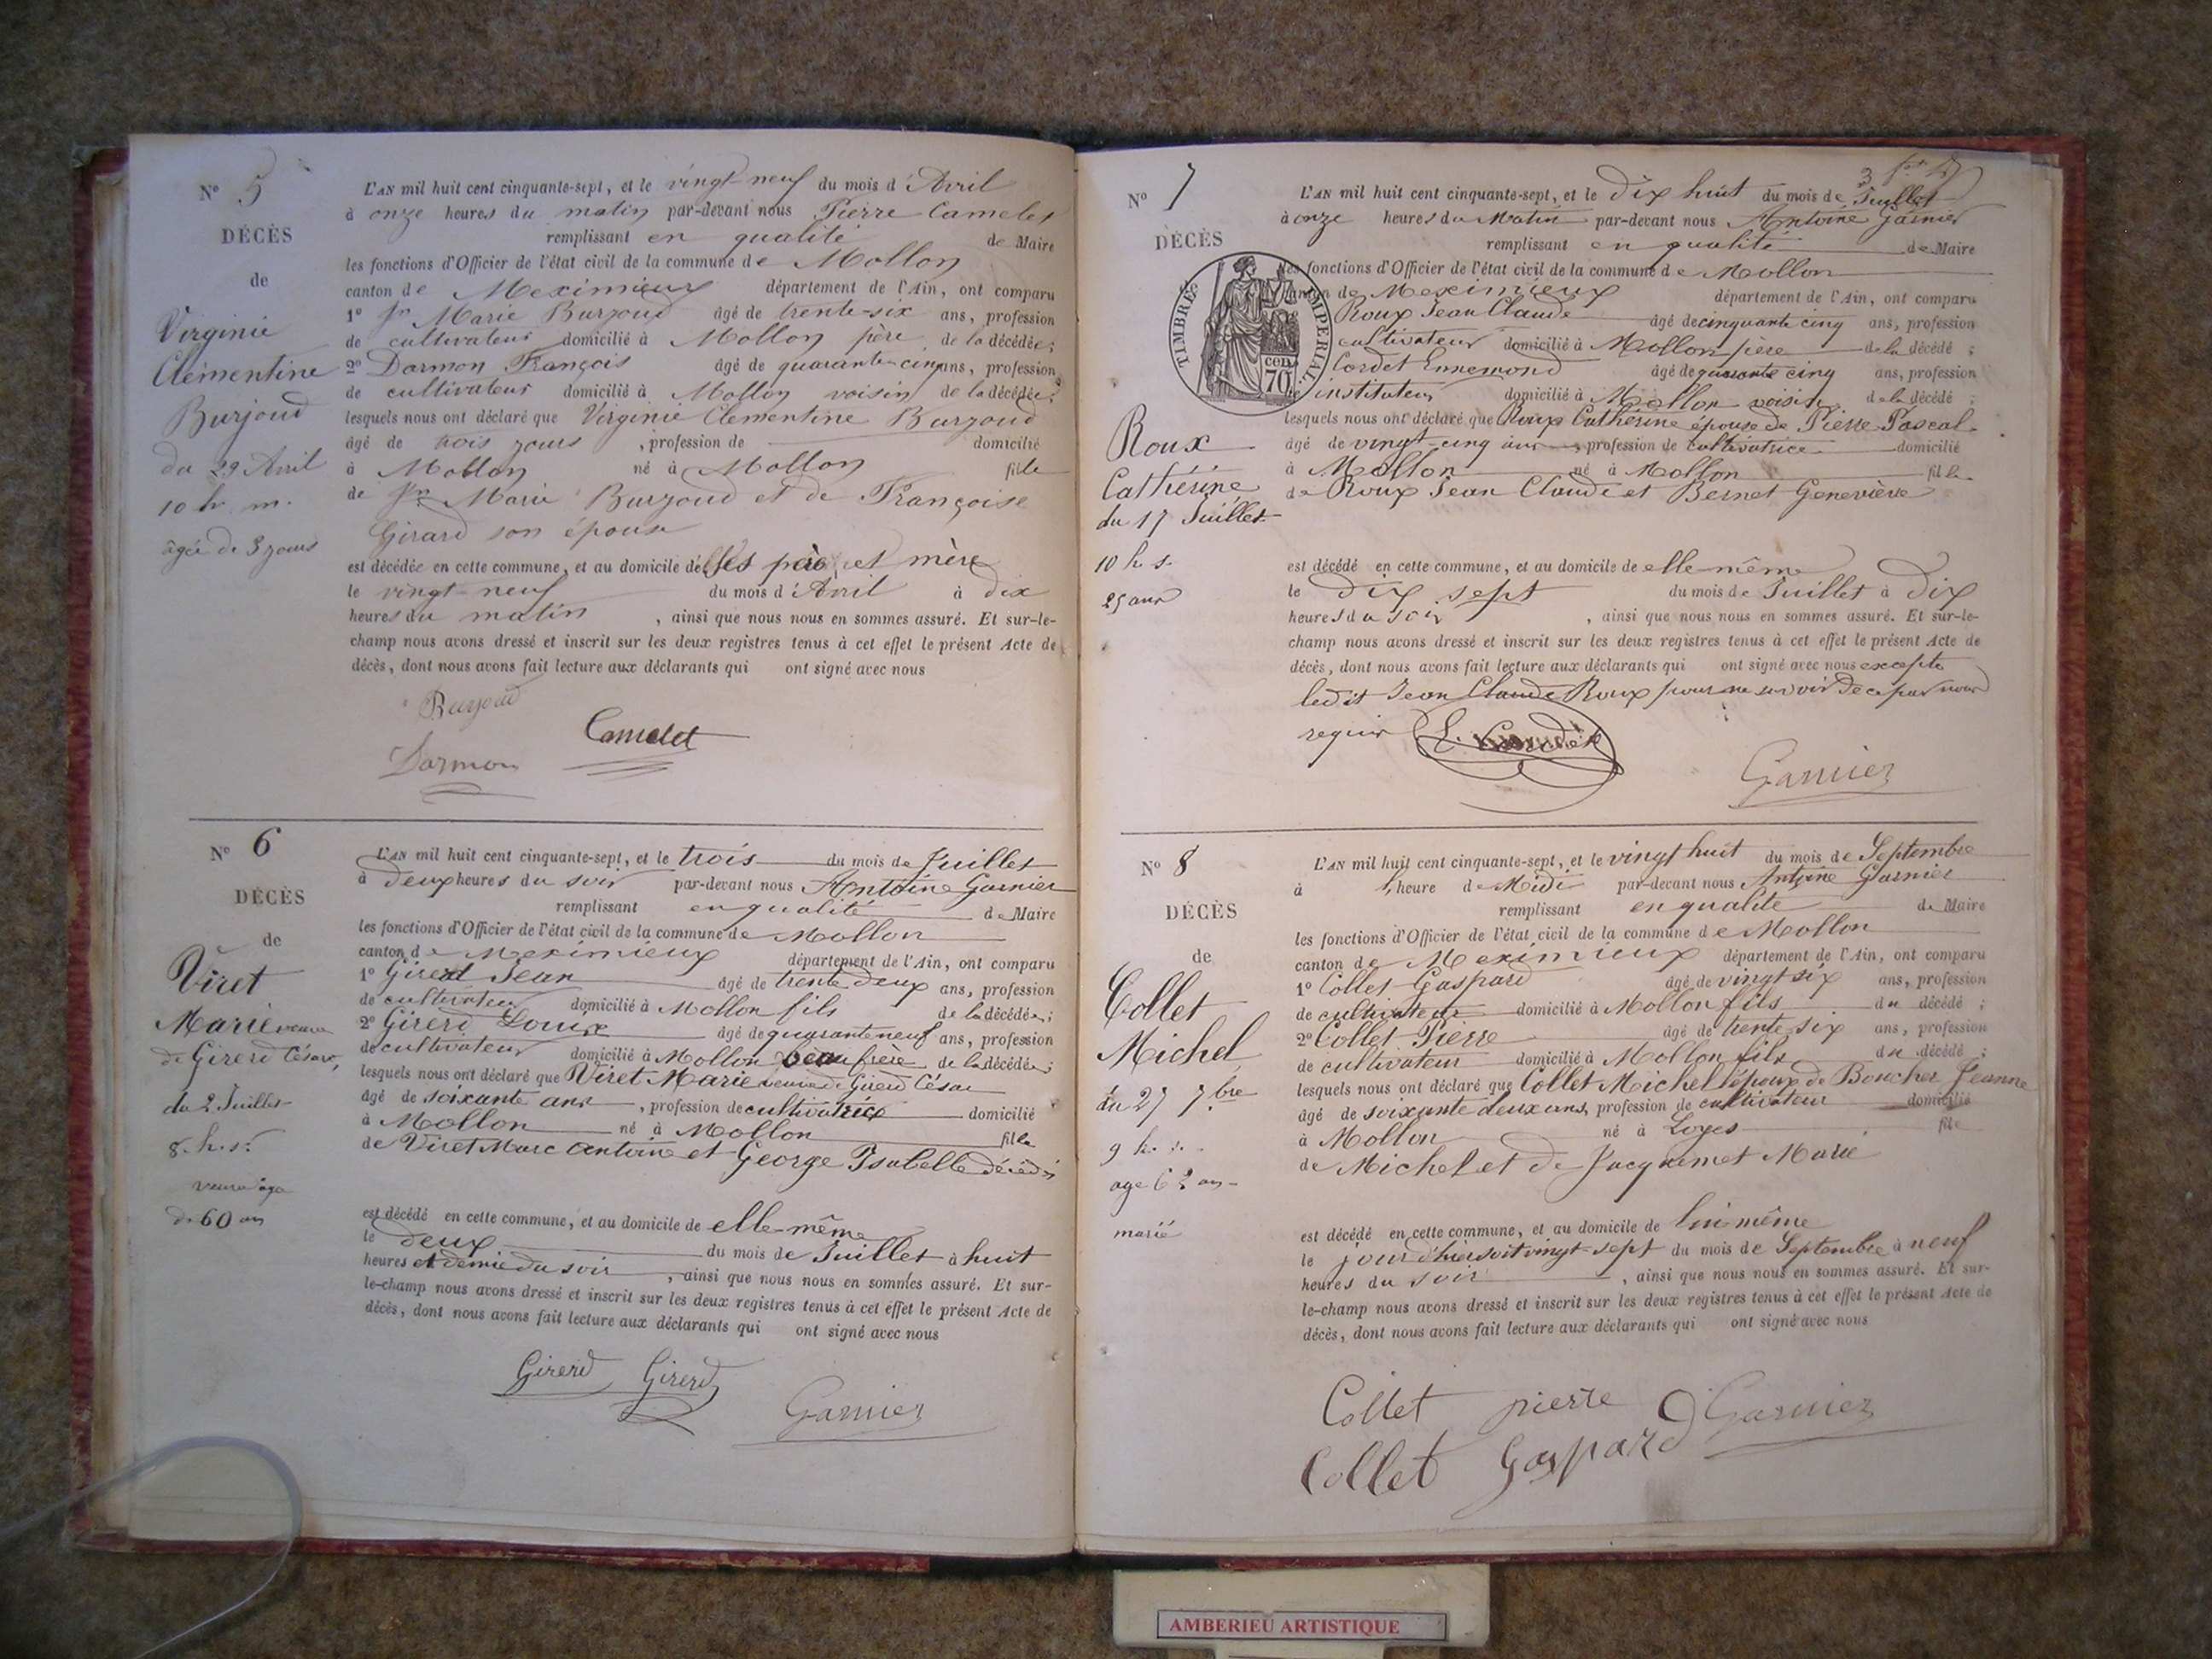 N° 5
DÉCÈS
de
Virginie
Clémentine
Burjoud
du 29 Avril
10 h. m.
âgée de 3 jours
L'AN mil huit cent cinquante-sept, et le vingt-neuf du mois d'Avril
à onze heures du matin par-devant nous Pierre Camelet
remplissant en qualité de Maire
les fonctions d'Officier de l'état civil de la commune de Mollon
canton de Meximieux département de l'Ain, ont comparu
1° Jn Marie Burjoud âgé de trente-six ans, profession
de cultivateur domicilié à Mollon père de la décédée;
2° Darmon François âgé de quarante-cinq ans, profession
de cultivateur domicilié à Mollon voisin de la décédée;
lesquels nous ont déclaré que Virginie Clémentine Burjoud
âgé de trois jours, profession de domicilié
à Mollon né à Mollon fille
de Jn Marie Burjoud et de Françoise
Girard son épouse
est décédée en cette commune, et au domicile de ses père et mère
le vingt-neuf du mois d'Avril à dix
heures du matin, ainsi que nous nous en sommes assuré. Et sur-le-
champ nous avons dressé et inscrit sur les deux registres tenus à cet effet le présent Acte de
décès, dont nous avons fait lecture aux déclarants qui ont signé avec nous
Burjoud
Camelet
Darmon
N° 6
DÉCÈS
de
Viret
Marie veuve
de Girerd César,
du 2 Juillet
8. h. s.
veuve âgé
de 60 an
L'AN mil huit cent cinquante-sept, et le trois du mois de Juillet
à deux heures du soir par-devant nous Antoine Garnier
remplissant en qualité de Maire
les fonctions d'Officier de l'état civil de la commune de Mollon
canton de Meximieux département de l'Ain, ont comparu
1° Girerd Jean âgé de trente deux ans, profession
de cultivateur domicilié à Mollon fils de la décédée;
2° Girerd Louis âgé de quarante neuf ans, profession
de cultivateur domicilié à Mollon beau frère de la décédée;
lesquels nous ont déclaré que Viret Marie veuve de Girerd César
âgé de soixante ans, profession de cultivatrice domicilié
à Mollon né à Mollon fille
de Viret Marc Antoine et George Isabelle décédés
est décédé en cette commune, et au domicile de elle-même
le deux du mois de Juillet à huit
heures et demie du soir, ainsi que nous nous en sommes assuré. Et sur-
le-champ nous avons dressé et inscrit sur les deux registres tenus à cet effet le présent Acte de
décès, dont nous avons fait lecture aux déclarants qui ont signé avec nous
Girerd Girerd
Garnier
N° 7
DÉCÈS
TIMBRE IMPERIAL
cen. 70
Roux
Cathérine
du 17 Juillet
10 h. s.
25 ans
L'AN mil huit cent cinquante-sept, et le dix huit du mois de Juillet
à onze heures du Matin par-devant nous Antoine Garnier
remplissant en qualité de Maire
les fonctions d'Officier de l'état civil de la commune de Mollon
canton de Meximieux département de l'Ain, ont comparu
Roux Jean Claude âgé de cinquante cinq ans, profession
cultivateur domicilié à Mollon père de la décédé;
Cordet Ennemond âgé de quarante cinq ans, profession
instituteur domicilié à Mollon voisin de la décédé;
lesquels nous ont déclaré que Roux Cathérine épouse de Pierre Pascal
âgé de vingt-cinq ans, profession de cultivatrice domicilié
à Mollon né à Mollon fille
de Roux Jean Claude et Bernet Geneviève
est décédé en cette commune, et au domicile de elle-même
le dix sept du mois de Juillet à dix
heures du soir, ainsi que nous nous en sommes assuré. Et sur-le-
champ nous avons dressé et inscrit sur les deux registres tenus à cet effet le présent Acte de
décès, dont nous avons fait lecture aux déclarants qui ont signé avec nous excepté
ledit Jean Claude Roux pour ne savoir de ce par nous
requis
Garnier
N° 8
DÉCÈS
de
Collet
Michel
du 27 7bre
9 h. s.
age 62 an
marié
L'AN mil huit cent cinquante-sept, et le vingt huit du mois de Septembre
à l'heure de Midi par-devant nous Antoine Garnier
remplissant en qualité de Maire
les fonctions d'Officier de l'état civil de la commune de Mollon
canton de Meximieux département de l'Ain, ont comparu
1° Collet Gaspard âgé de vingt six ans, profession
de cultivateur domicilié à Mollon fils du décédé;
2° Collet Pierre âgé de trente-six ans, profession
de cultivateur domicilié à Mollon fils du décédé;
lesquels nous ont déclaré que Collet Michel époux de Boucher Jeanne
âgé de soixante deux ans, profession de cultivateur domicilié
à Mollon né à Loyes fils
de Michel et de Jacquemet Marie
est décédé en cette commune, et au domicile de lui-même
le jour d'hier soit vingt-sept du mois de Septembre à neuf
heures du soir, ainsi que nous nous en sommes assuré. Et sur-
le-champ nous avons dressé et inscrit sur les deux registres tenus à cet effet le présent Acte de
décès, dont nous avons fait lecture aux déclarants qui ont signé avec nous
Collet pierre Garnier
Collet Gaspard
AMBERIEU ARTISTIQUE